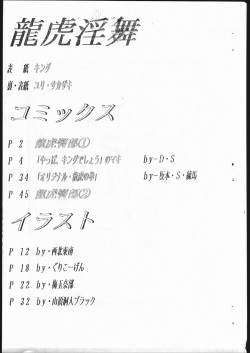 龍虎淫舞
表 紙 キング
裏・表紙 ユリ・サカザキ
コミックス
P 2 龍虎舞部①
P 4 「やっぱ、キングでしょう」のマキ by-D・S
P 34 「オリジナル・龍虎の拳」 by-坂本・S・縞馬
P 45 龍虎舞部②
イラスト
P 12 by・西北東南
P 18 by・ぐりこーげん
P 22 by・梅玉奈部
P 32 by・山田桐人ブラック